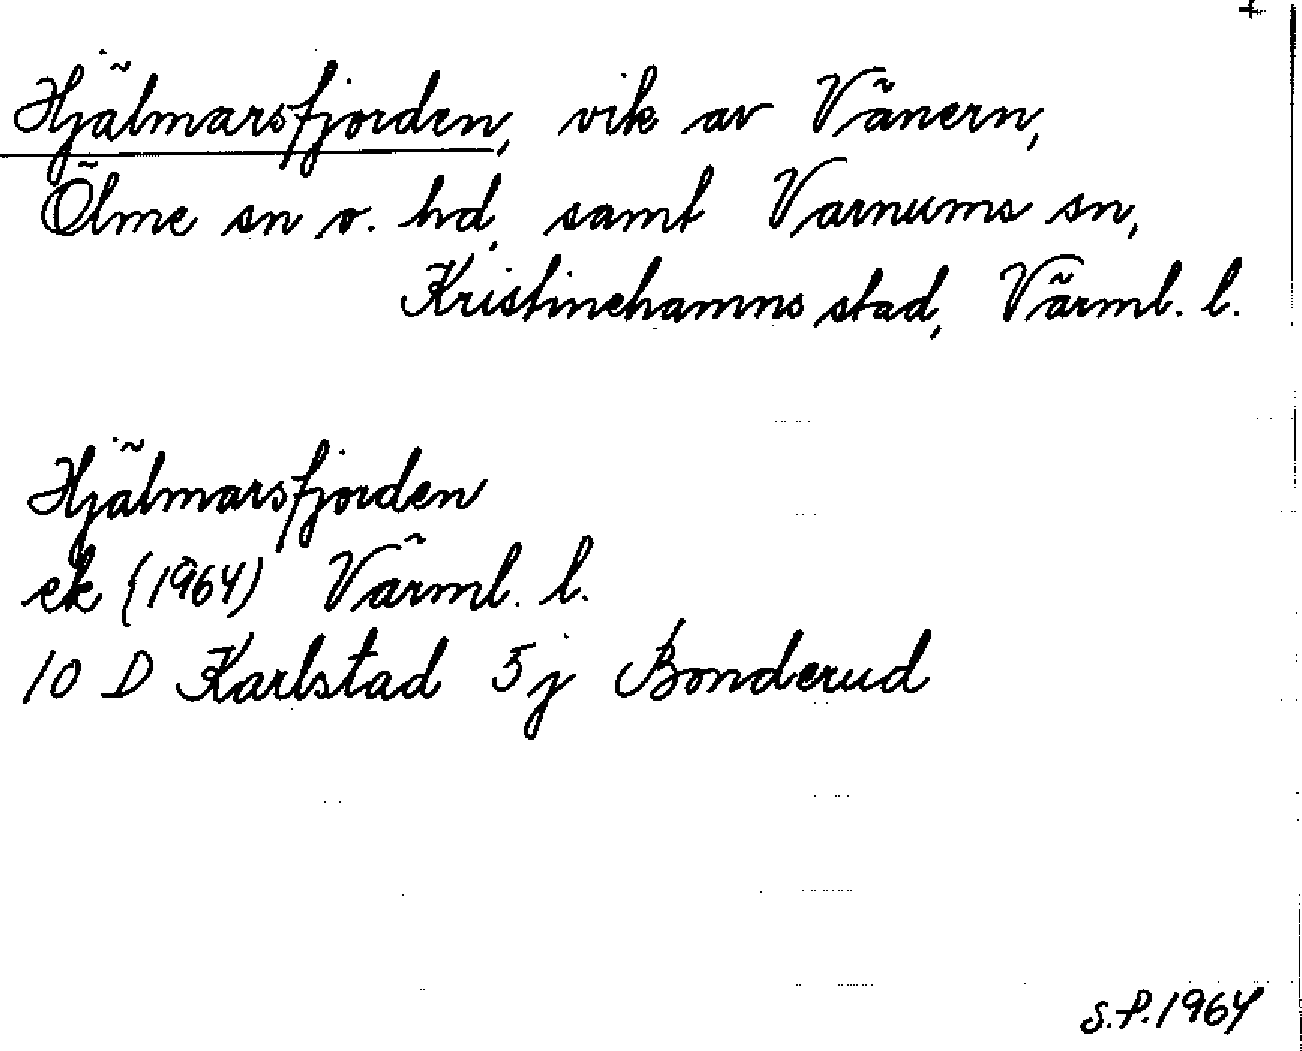 +
Hjälmarsfjorden, vik av Vänern,
Ölme sn o. hd, samt Varnums sn,
Kristinehamns stad, Värml. l.
Hjälmarsfjorden
ek (1964) Värml. l.
10 D Karlstad 5j Bonderud
S.P. 1964